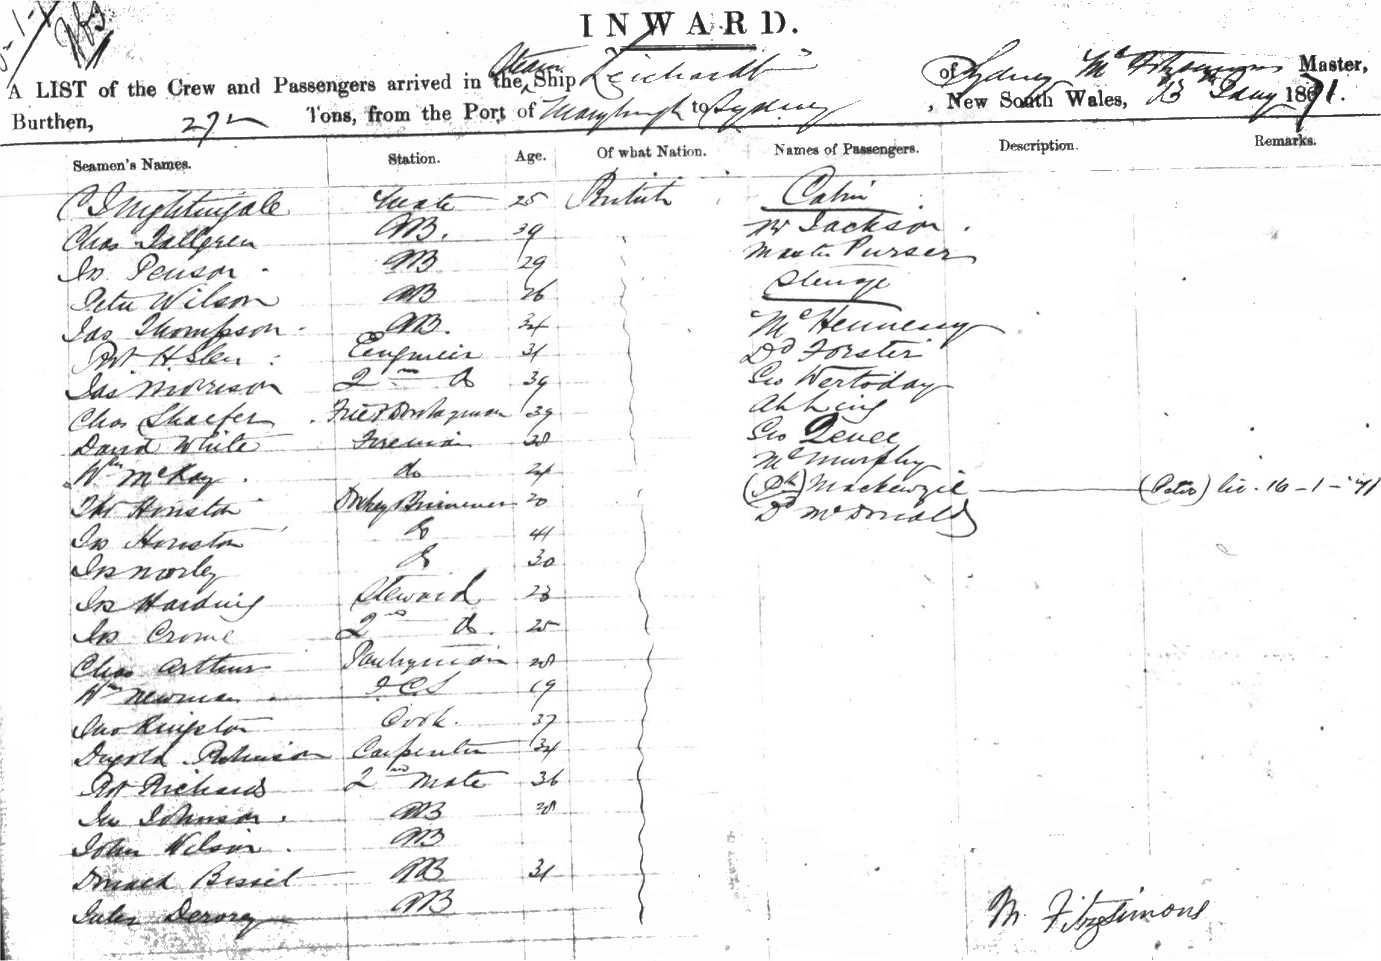 INWARD.
A LIST of the Crew and Passengers arrived in the Steam Ship Leichardt of Sydney Mc Fitzsimons Master,
Burthen, 272 Tons, from the Port of to Sydney, New South Wales, 13th Jany 1871.
Seamen's Names. Station. Age. Of what Nation. Names of Passengers. Description. Remarks.
C J Nightingale Mate 25 British Cabin
Chas AB. 39 Mr Jackson.
Jn Penson AB 29 Master Purser
Peter Wilson AB 26 Steerage
Jas Thompson AB. 34 Mc Hennessy
Rt. H. Engineer 31 Do Forster
Jas Morrison 2nd do 39 Geo Wertoday
Chas Shaefer 39 Ah
David White Fireman 28 Geo
Wm McKay do 24 Mc Murphy
Thos Houston Donkey 20 (Ph) Mackenzie (Peter) 16-1-71
Jn Houston do 44 Do McDonald
Jn Morley do 30
Jn Harding Steward 23
Jn Crome 2nd do. 25
Chas Arthur Pantryman 28
Wm Newman 19
Jno Kingston Cook. 37
Robinson Carpenter 34
Rot Richards 2nd Mate 36
Jno Johnson. AB 28
John Wilson. AB
Donald AB 31
AB
M. Fitzsimons